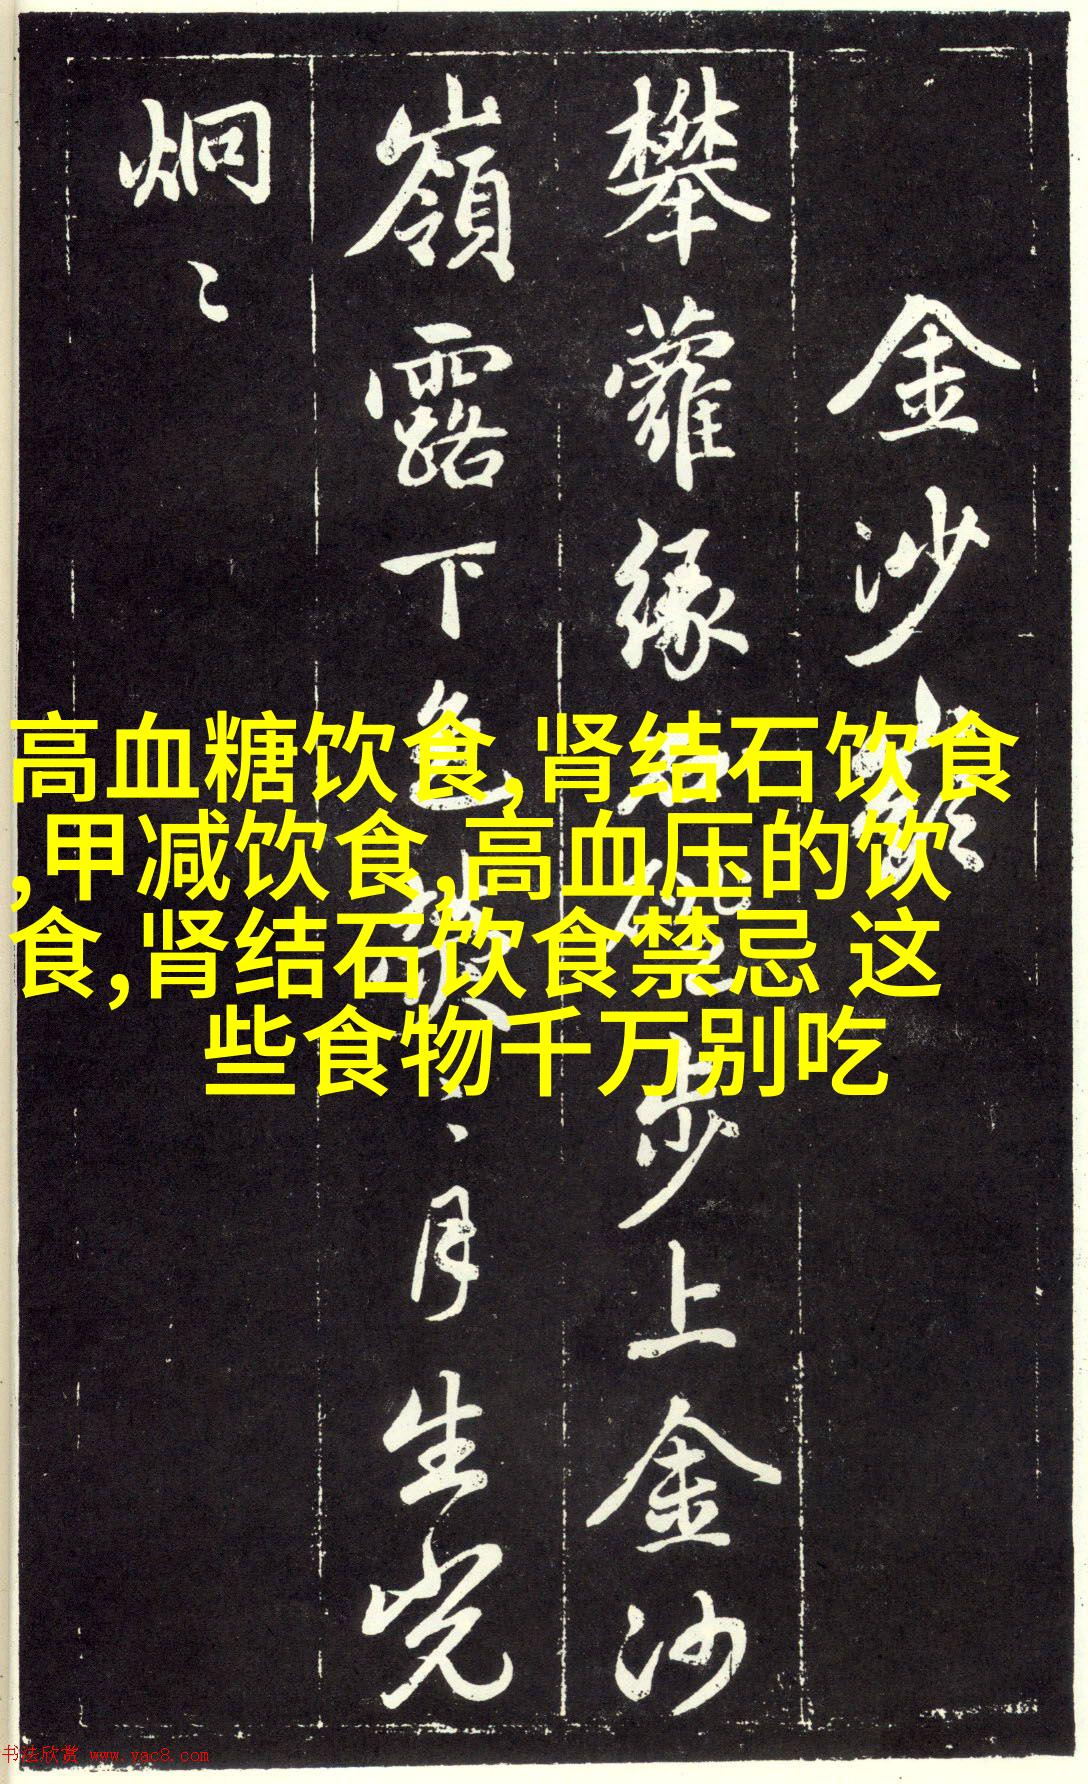 金沙嶺
攀蘿緣石磴步上金沙
嶺露下色〻月生光
炯〻
高血糖饮食,肾结石饮食
,甲减饮食,高血压的饮
食,肾结石饮食禁忌 这
些食物千万别吃
书法欣赏 www.yac8.com